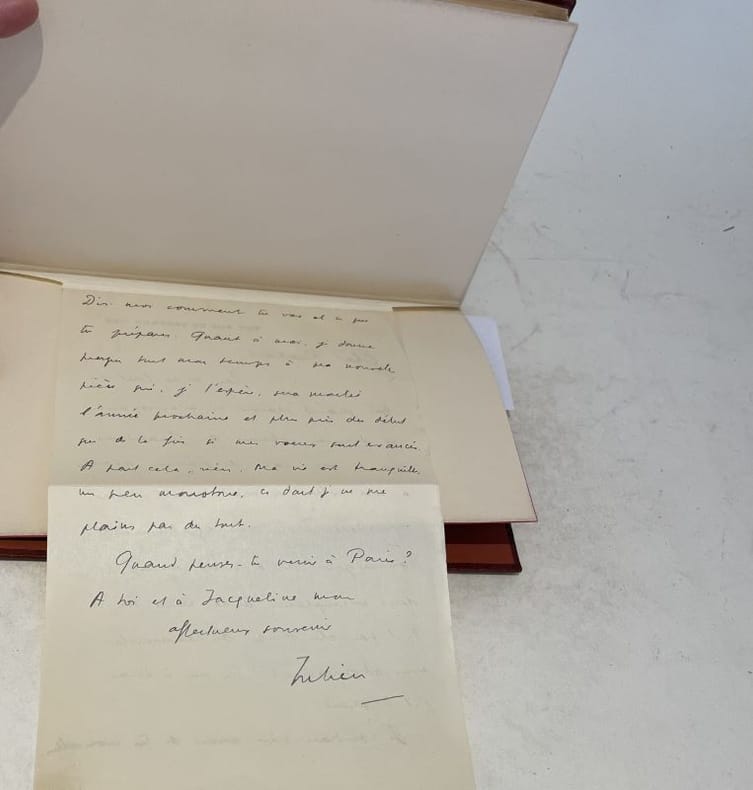 Dis-moi comment tu vas et ce que
tu prépares. Quant à moi, je donne
presque tout mon temps à ma nouvelle
pièce qui, je l'espère, sera montée
l'année prochaine et plus près du début
que de la fin si mes voeux sont exaucés.
A part cela, rien. Ma vie est tranquille,
un peu monotone, ce dont je ne me
plains pas du tout.
Quand penses-tu venir à Paris?
A toi et à Jacqueline mon
affectueux souvenir
Julien